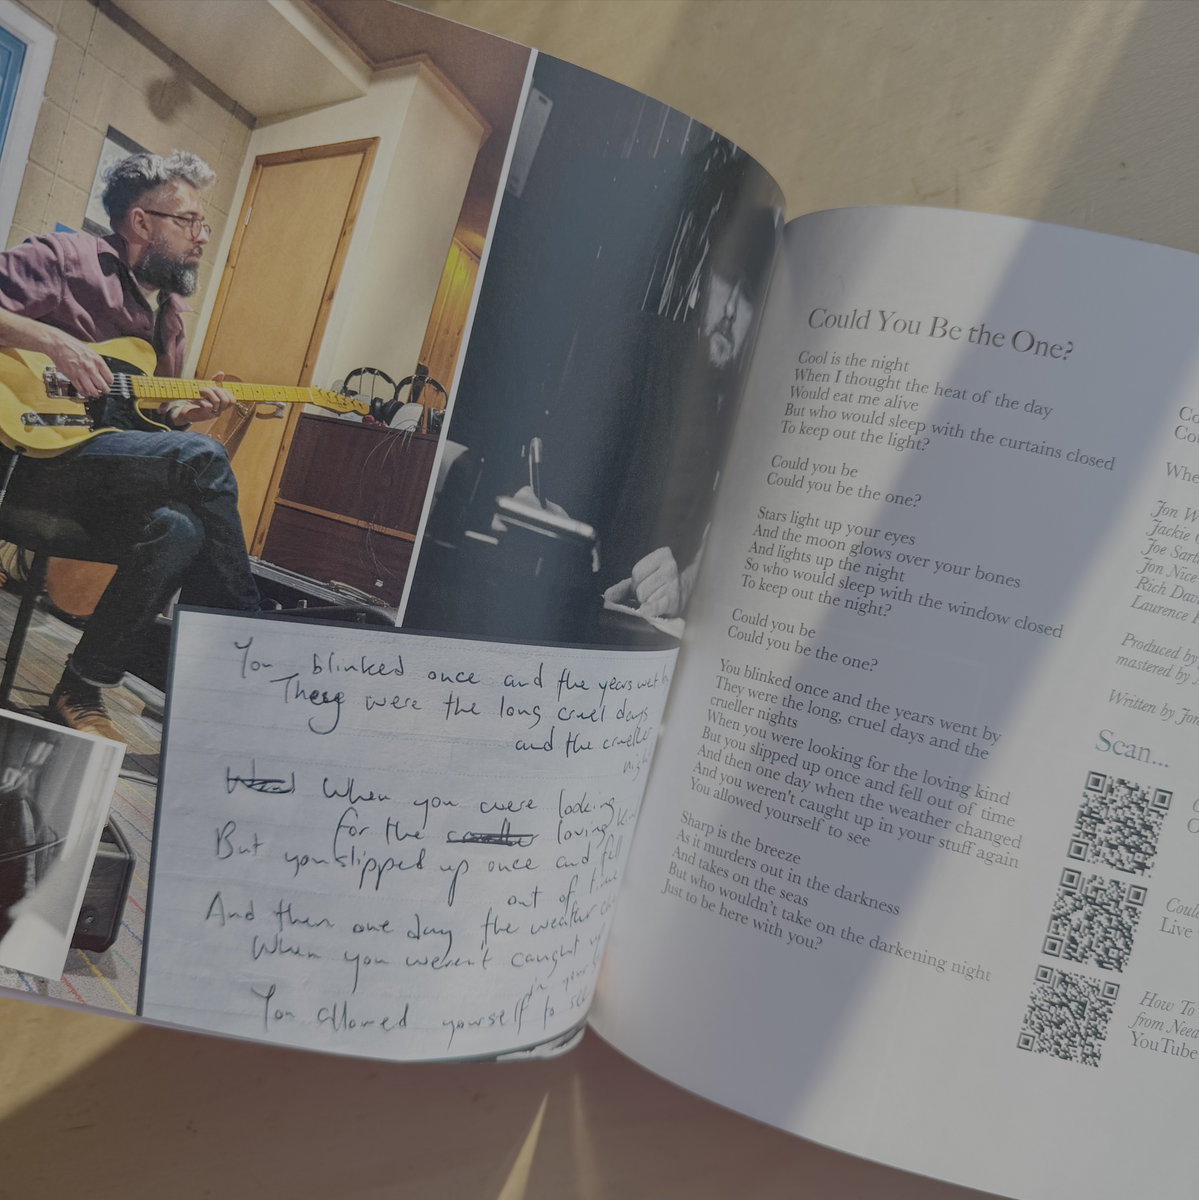 You blinked once and the years went
They were the long cruel days
and the crueller
When you were looking
for the loving
But you slipped up once and fell
out of time
And then one day the weather
When you weren't caught
in your
You allowed yourself to see
Could You Be the One?
Cool is the night
When I thought the heat of the day
Would eat me alive
But who would sleep with the curtains closed
To keep out the light?
Could you be
Could you be the one?
Stars light up your eyes
And the moon glows over your bones
And lights up the night
So who would sleep with the window closed
To keep out the night?
Could you be
Could you be the one?
You blinked once and the years went by
They were the long, cruel days and the
crueller nights
When you were looking for the loving kind
But you slipped up once and fell out of time
And then one day when the weather changed
And you weren't caught up in your stuff again
You allowed yourself to see
Sharp is the breeze
As it murders out in the darkness
And takes on the seas
But who wouldn't take on the darkening night
Just to be here with you?
Jon
Jackie
Joe
Jon
Rich
Laurence
Produced by
mastered by
Written by
Scan...
Live
How To
from
YouTube